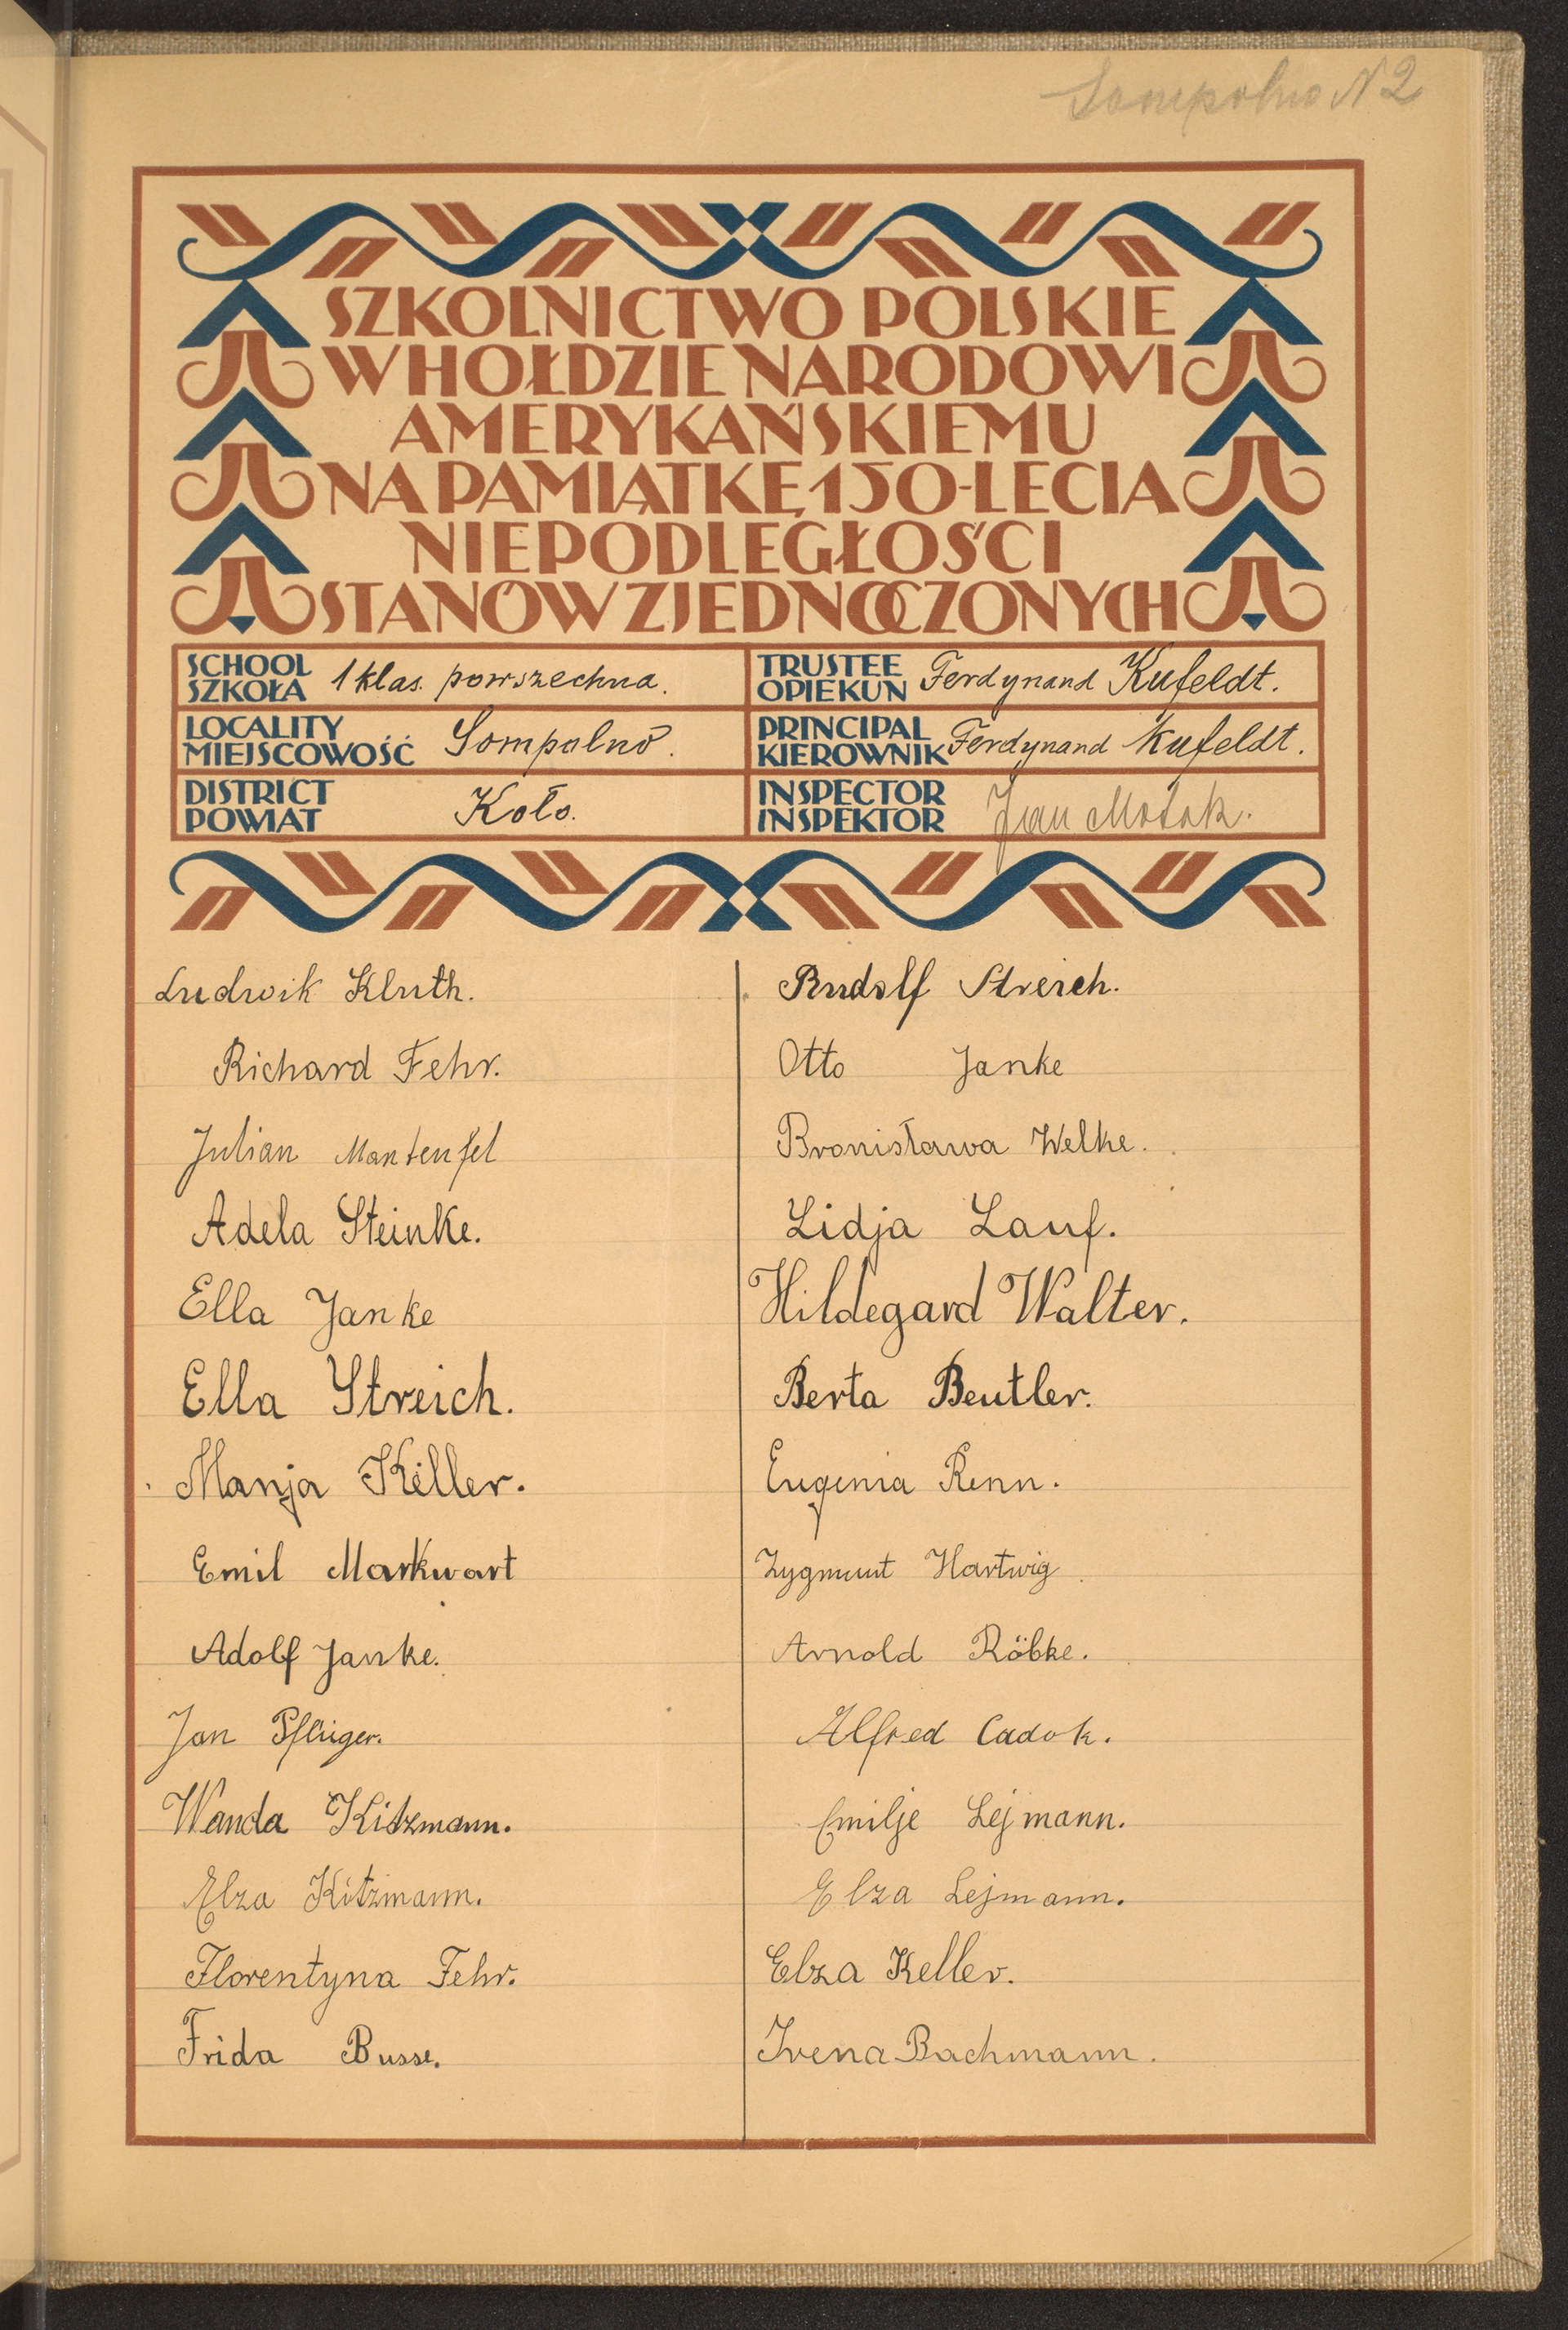 Sompolno N 2
SZKOLNICTWO POLSKIE
W HOŁDZIE NARODOWI
AMERYKAŃSKIEMU
NA PAMIĄTKĘ 150-LECIA
NIEPODLEGŁOŚCI
STANÓW ZJEDNOCZONYCH
SCHOOL
SZKOŁA
1 klas. powszechna.
TRUSTEE
OPIEKUN
Ferdynand Kufeldt.
LOCALITY
MIEJSCOWOŚĆ
Sompolno.
PRINCIPAL
KIEROWNIK
Ferdynand Kufeldt.
DISTRICT
POWIAT
Koło.
INSPECTOR
INSPEKTOR
Jan
Ludwik Kluth.
Richard Fehr.
Julian Manteufel
Adela Steinke.
Ella Janke
Ella Streich.
Manja Killer.
Emil Markwart
Adolf Janke.
Jan Pflüger.
Wanda Kitzmann.
Elza Kitzmann.
Florentyna Fehr.
Frida Busse.
Rudolf Streich.
Otto Janke
Bronisława Welke.
Lidja Lauf.
Hildegard Walter.
Berta Beutler.
Eugenia Renn.
Zygmunt Hartwig
Arnold Röbke.
Alfred Cadok.
Emilje Lejmann.
Elza Lejmann.
Elza Keller.
Irena Bachmann.